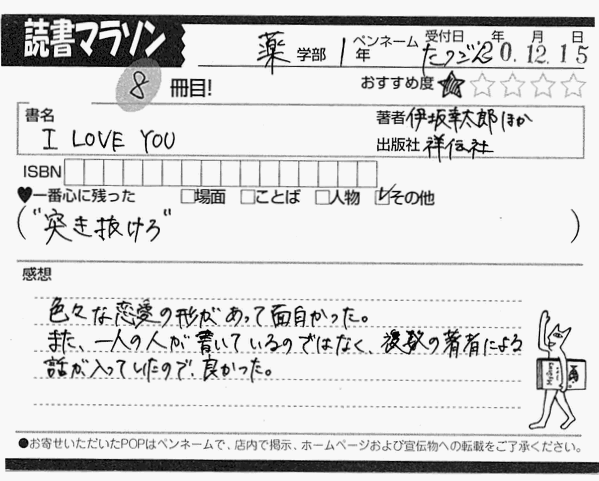 読書マラソン
薬学部 1年 ペンネーム たつごん 受付日 20.12.15 年 月 日
8冊目! おすすめ度 ★☆☆☆☆
書名 I LOVE YOU
著者 伊坂幸太郎ほか
出版社 祥伝社
ISBN
♥一番心に残った □場面 □ことば □人物 ☑その他
("突き抜けろ")
感想
色々な恋愛の形があって面白かった。
また、一人の人が書いているのではなく、複数の著者による
話が入っていたので、良かった。
●お寄せいただいたPOPはペンネームで、店内で掲示、ホームページおよび宣伝物への転載をご了承ください。